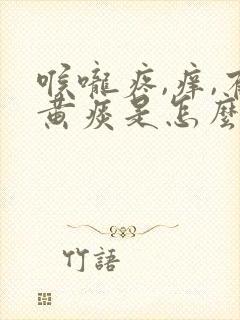 喉嚨疼,痒,有
黄痰是怎麼
竹語